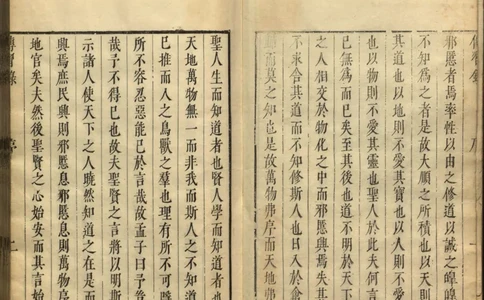 邪慝者焉率性以由之修道以誠之皡皡
不知為之者是故大順之所積也以天則
其道也以地則不愛其寶也以人則
也以物則不愛其靈也聖人於此夫何言
已無為而已矣至其後也道不明於天下
之人相交於物化之中而邪慝興焉失其
不求舍其道而不知修斯人也日入於禽
而莫之知也是故萬物弗序而天地弗
聖人生而知道者也賢人學而知道者也
天地萬物無一而非我而斯人之不知道
已推而人之鳥獸之羣也理有所不可
所不容忍惡能已於言哉故孟子曰予
哉予不得已也故夫聖賢之言將以明斯
示諸人使天下之人曉然知道之在是而
興焉庶民興則邪慝息邪慝息則萬物序
地官矣夫然後聖賢之心始安而其言始
傳習錄
序
二